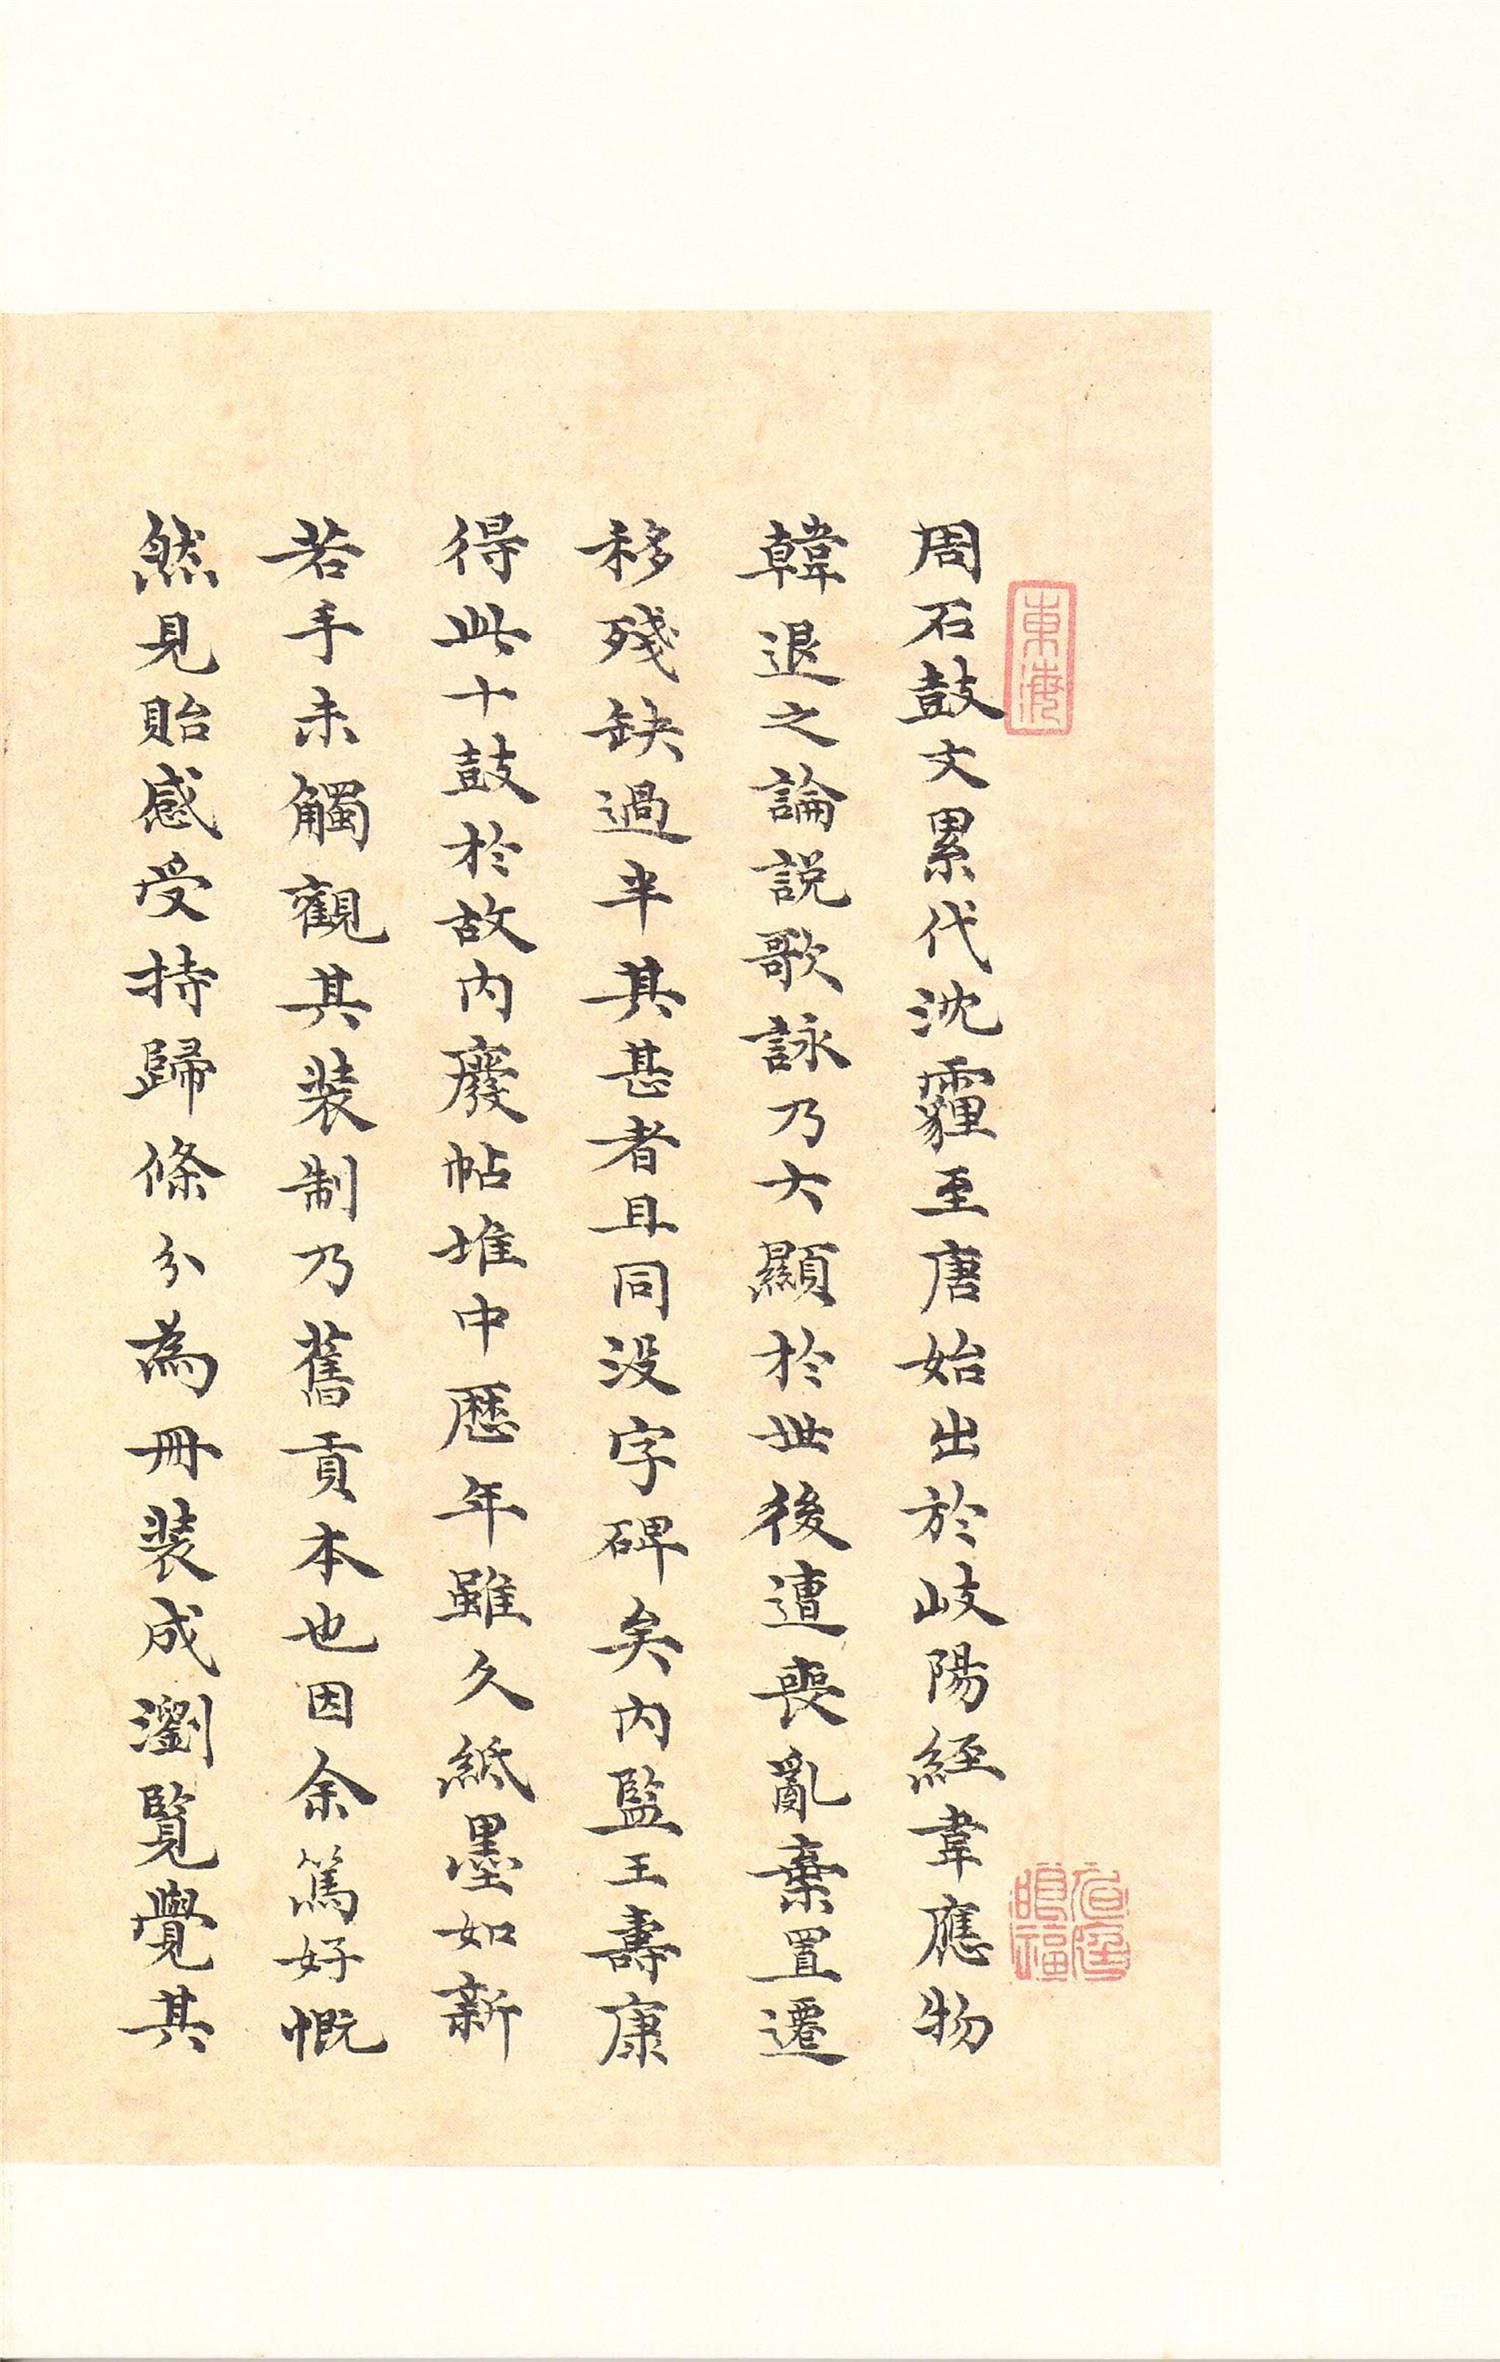 周石鼓文累代沈霾至唐始出於岐陽經韋應物
韓退之論說歌詠乃大顯於世後遭喪亂棄置遷
移殘缺過半其甚者且同没字碑矣内監王壽康
得此十鼓於故内廢帖堆中歷年雖久紙墨如新
若手未觸觀其装制乃舊貢本也因余篤好慨
然見貽感受持歸條分為冊装成瀏覽覺其
東海